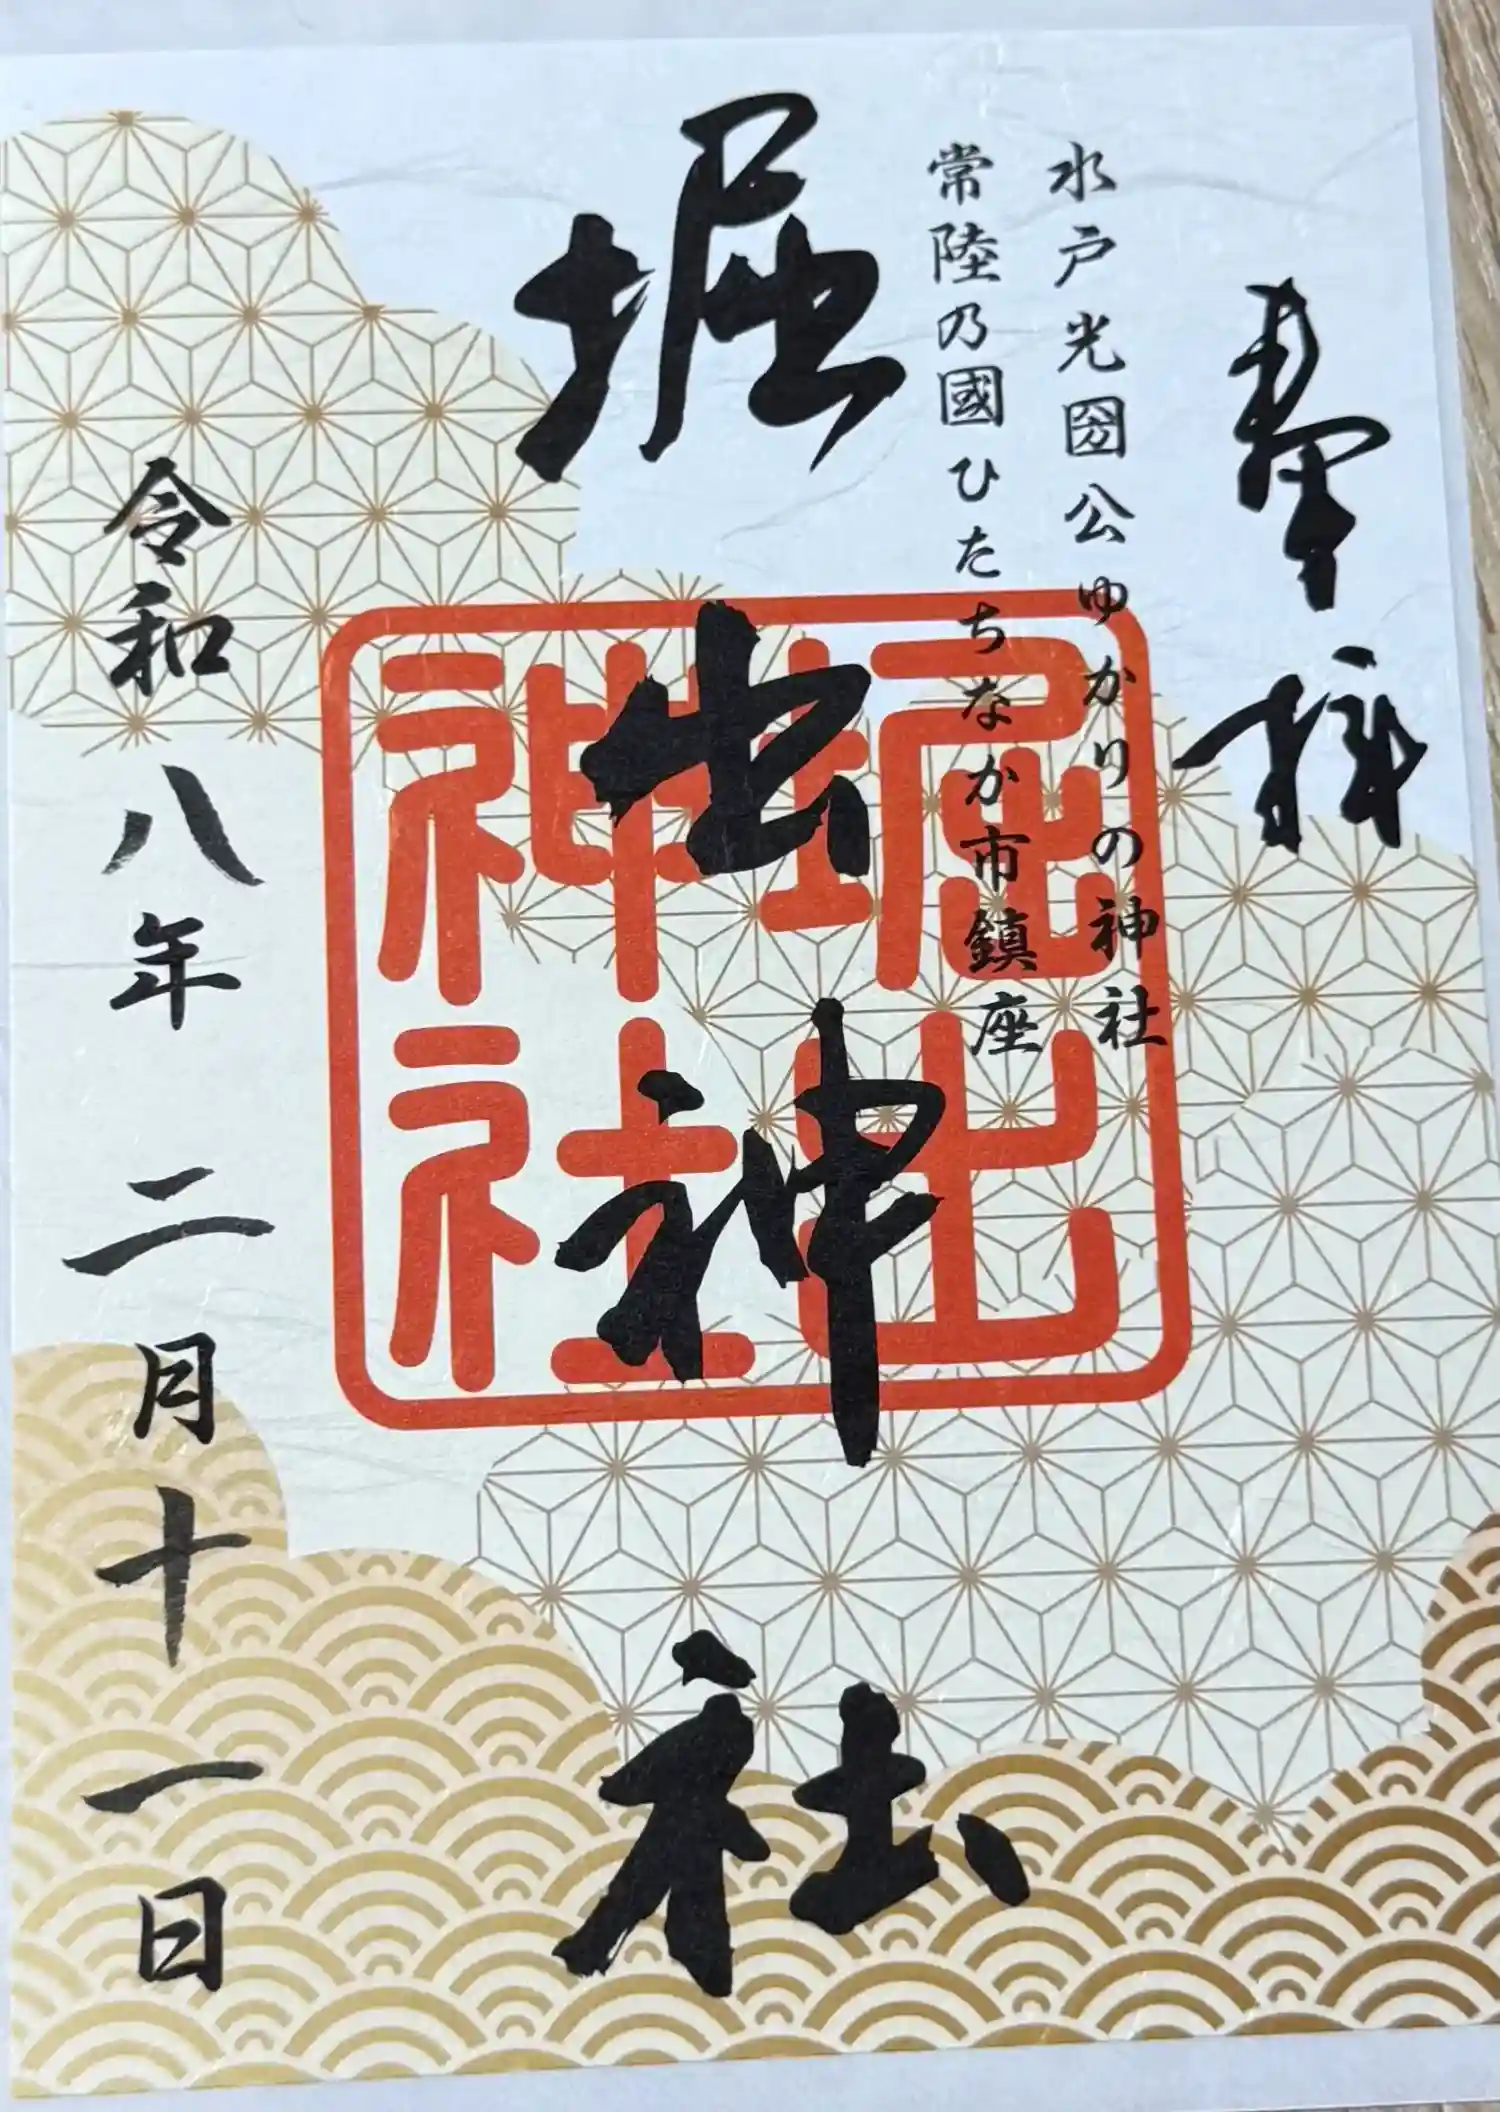 奉拝
水戸光圀公ゆかりの神社
常陸乃國ひたちなか市鎮座
堀出神社
堀出神社
令和八年二月十一日